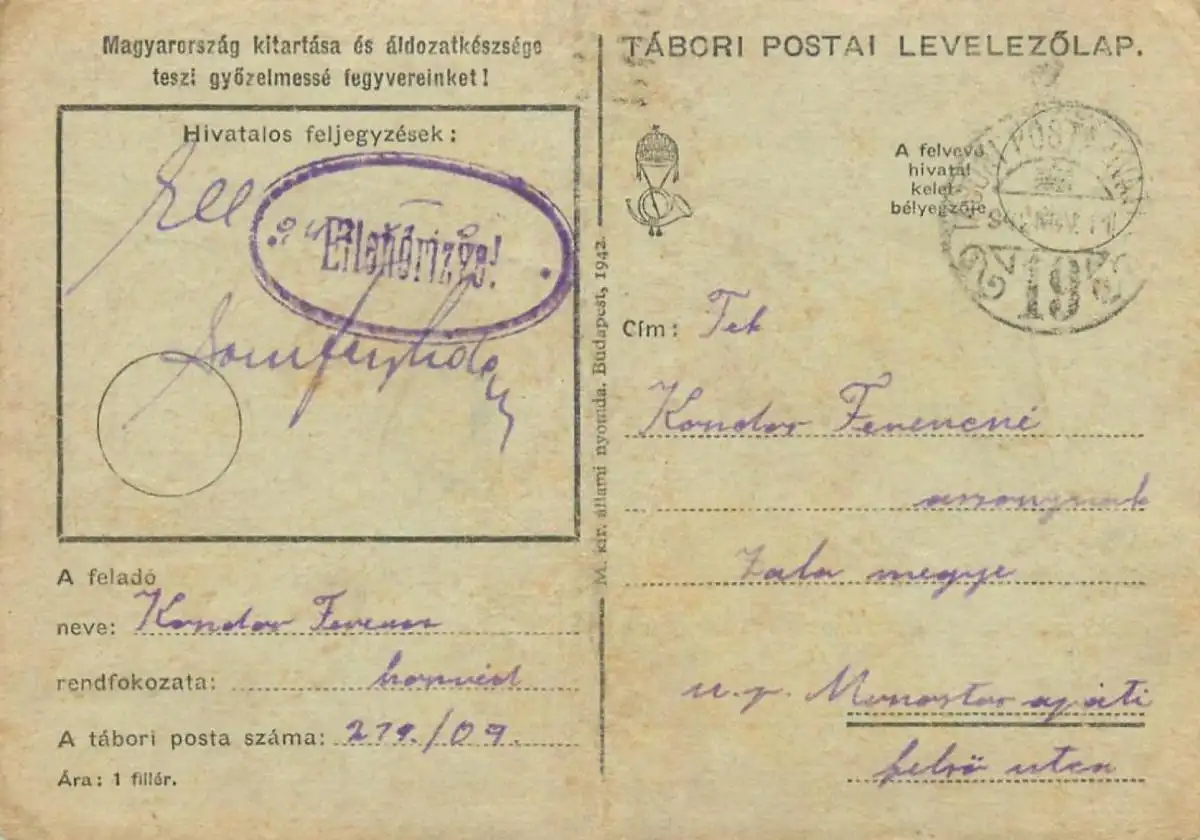 Magyarország kitartása és áldozatkészsége
teszi győzelmessé fegyvereinket!
Hivatalos feljegyzések:
Ellenőrizve!
A feladó
neve: Kondor Ferenc
rendfokozata: honvéd
A tábori posta száma: 219./09.
Ára: 1 fillér.
M. kir. állami nyomda. Budapest, 1942.
TÁBORI POSTAI LEVELEZŐLAP.
A felvevő
hivatal
kelet-
bélyegzője
TÁBORI POSTA
942 NOV.
19
Cím: Tek
Kondor Ferencné
asszonynak
Zala megye
u. p. Monostor apáti
felső utca